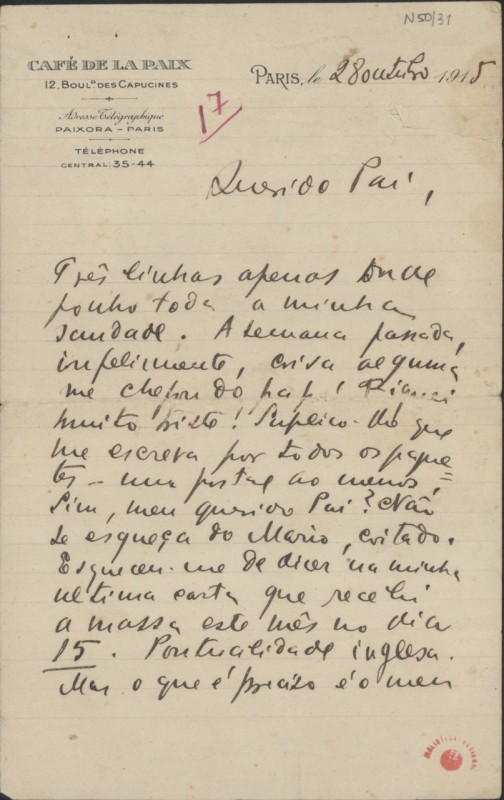 N50/31
CAFÉ DE LA PAIX
12, BOUL.ᴰ DES CAPUCINES
Adresse Télégraphique
PAIXORA – PARIS
TÉLÉPHONE
CENTRAL: 35-44
PARIS, le 28 outubro 1915
17
Querido Pai,
Três linhas apenas onde
ponho toda a minha
saudade. A semana passada,
infelizmente, coisa alguma
me chegou do pap!
muito triste! Suplico-lhe que
me escreva por todos os paque=
tes – um postal ao menos!
Sim, meu querido Pai? Não
se esqueça do Mario, coitado.
Esqueceu-me de dizer na minha
ultima carta que recebi
a massa este mês no dia
15. Pontualidade inglesa.
Mas o que é preciso é o meu
BIBLIOTECA NACIONAL